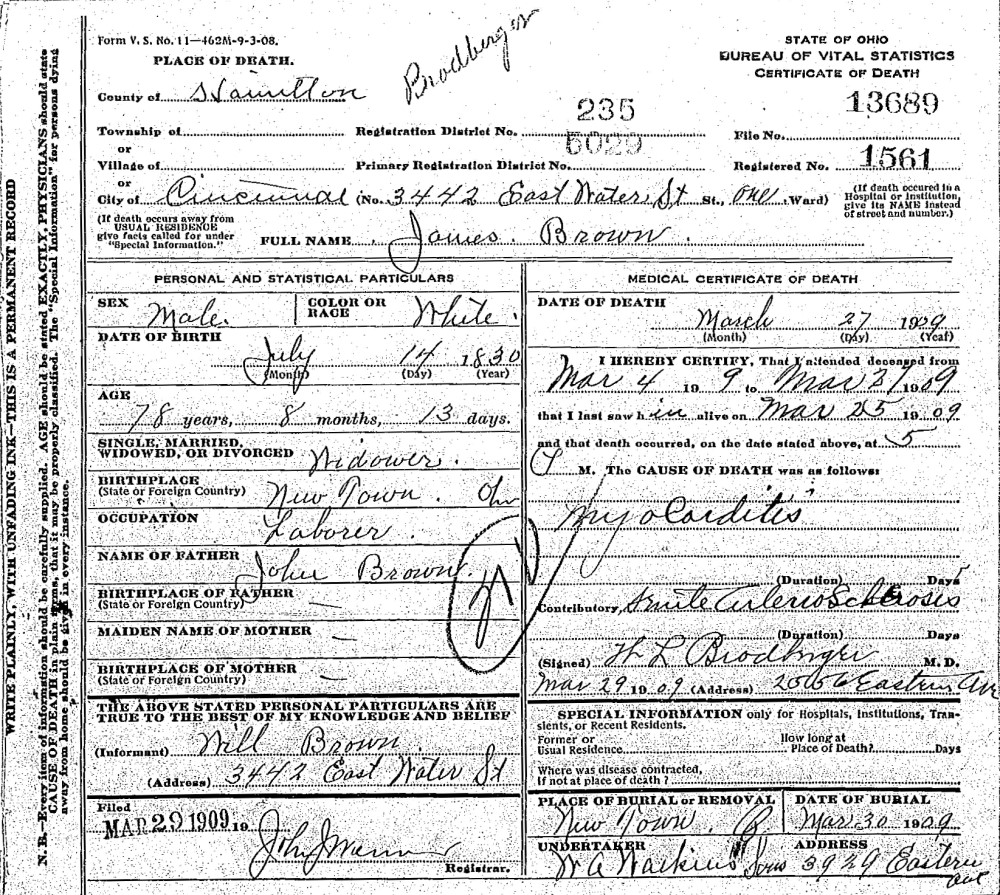 WRITE PLAINLY, WITH UNFADING INK—THIS IS A PERMANENT RECORD
N. B.—Every item of information should be carefully supplied. AGE should be stated EXACTLY, PHYSICIANS should state
CAUSE OF DEATH in plain terms, that it may be properly classified. The "Special Information" for persons dying
away from home should be given in every instance.
Form V. S. No. 11—462M-9-3-08.
Brodberger
STATE OF OHIO
PLACE OF DEATH.
BUREAU OF VITAL STATISTICS
CERTIFICATE OF DEATH
County of Hamilton
235
13689
Township of Registration District No. File No.
or
5029
1561
Village of Primary Registration District No. Registered No.
or
City of Cincinnati (No. 3442 East Water St St., One Ward)
(If death occured in a
Hospital or Institution,
give its NAME instead
of street and number.)
(If death occurs away from
USUAL RESIDENCE
give facts called for under
"Special Information.")
FULL NAME James Brown
PERSONAL AND STATISTICAL PARTICULARS
SEX Male
COLOR OR
RACE White
DATE OF BIRTH
July 14 1830
(Month) (Day) (Year)
AGE
78 years, 8 months, 13 days.
SINGLE, MARRIED,
WIDOWED, OR DIVORCED Widower
BIRTHPLACE
(State or Foreign Country) New Town. Oh
OCCUPATION
Laborer.
NAME OF FATHER
John Brown.
BIRTHPLACE OF FATHER
(State or Foreign Country) —
MAIDEN NAME OF MOTHER —
BIRTHPLACE OF MOTHER
(State or Foreign Country) —
THE ABOVE STATED PERSONAL PARTICULARS ARE
TRUE TO THE BEST OF MY KNOWLEDGE AND BELIEF
(Informant) Will Brown
(Address) 3442 East Water St
Filed
MAR 29 1909 19
Registrar.
MEDICAL CERTIFICATE OF DEATH
DATE OF DEATH
March 27 1909
(Month) (Day) (Year)
I HEREBY CERTIFY, That I attended deceased from
Mar 4 19 9 to Mar 27 1909
that I last saw him alive on Mar 25 1909
and that death occurred, on the date stated above, at 5
M. The CAUSE OF DEATH was as follows:
Myocarditis
(Duration) Days
Contributory, Senile Arterio Sclerosis
(Duration) Days
(Signed) L Brodberger M. D.
Mar 29 1909 (Address) Eastern Ave
SPECIAL INFORMATION only for Hospitals, Institutions, Tran-
sients, or Recent Residents.
Former or
Usual Residence
How long at
Place of Death? Days
Where was disease contracted,
If not at place of death?
PLACE OF BURIAL or REMOVAL
New Town.
DATE OF BURIAL
Mar 30 1909
UNDERTAKER
W A Watkins Sons
ADDRESS
3929 Eastern
Ave